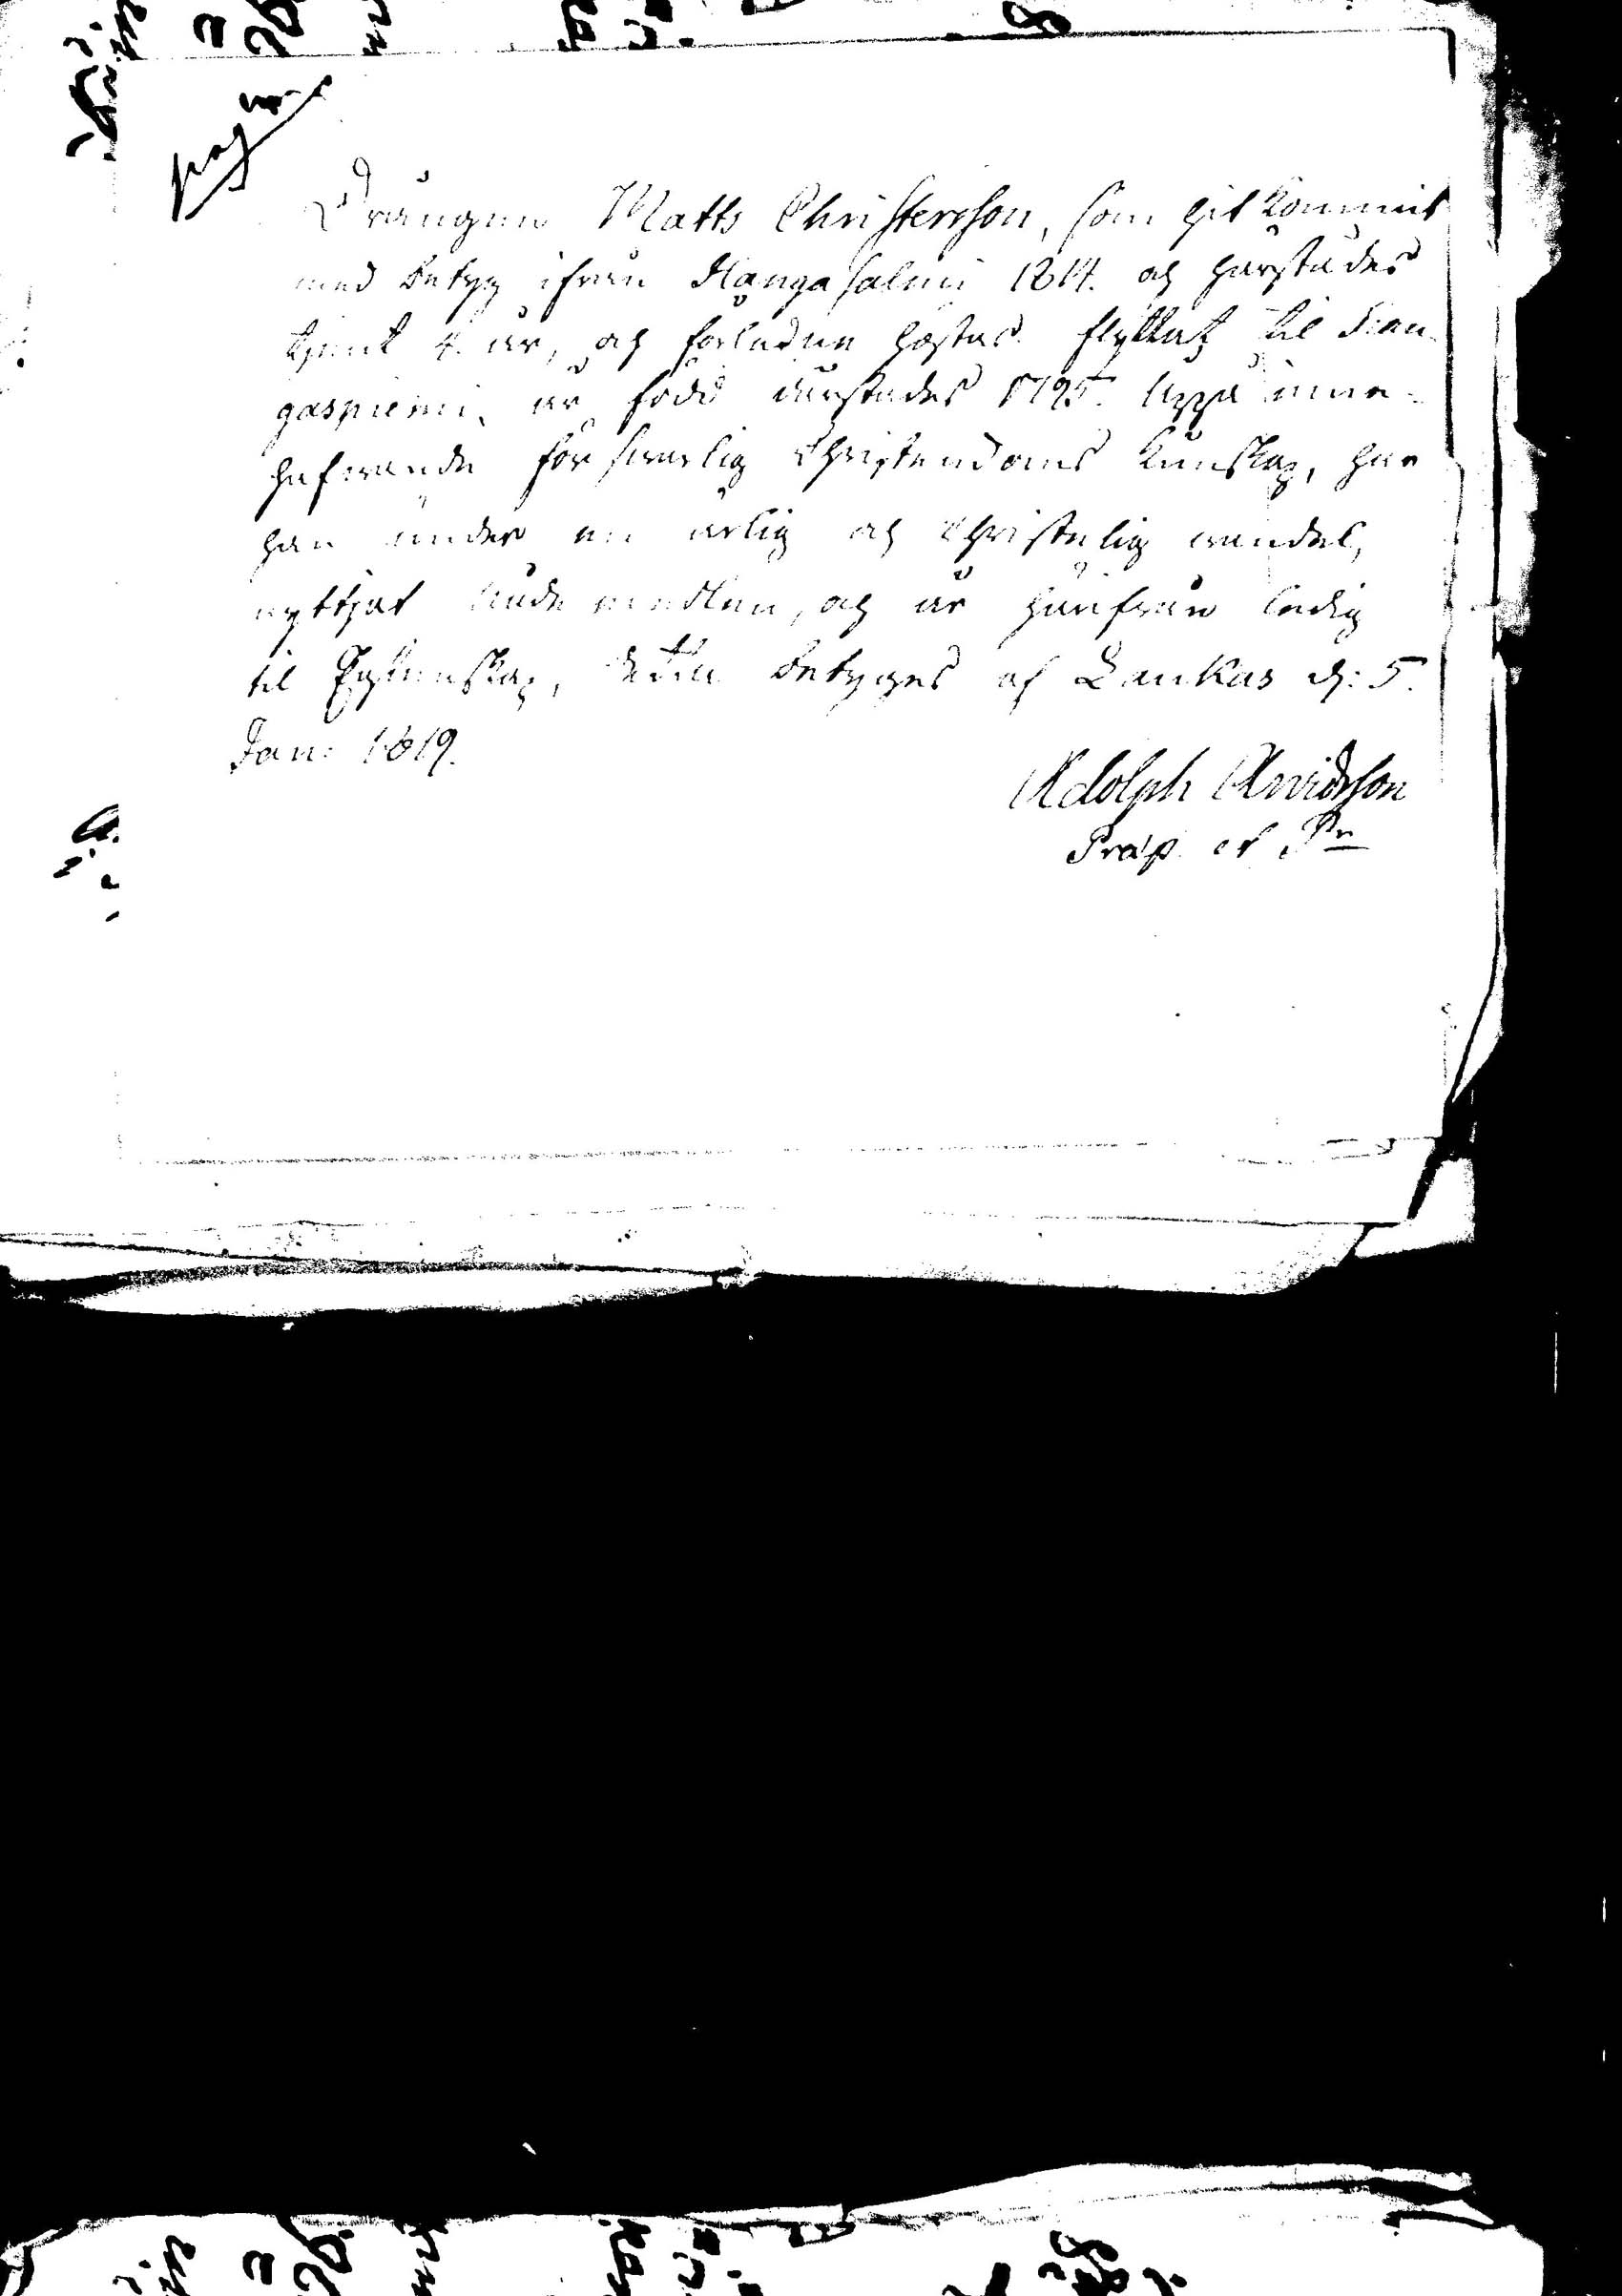 Drängen Matts Christersson, som hit kommit
med betyg ifrån Hangasalmi 1814. och härstädes
tjent 4. år, och förleden höstas flyttat til Kan-
gasniemi, är född därstädes 1795. inne-
hafwande förswarlig Christendoms kunskap, har
han under en ärlig och Christelig wandel,
nyttjat nådemedlen, och är härifrån ledig
til Egtenskap, betyges af Laukas d: 5.
Jan: 1819.
Adolph Arwidsson
Præp. et Pr